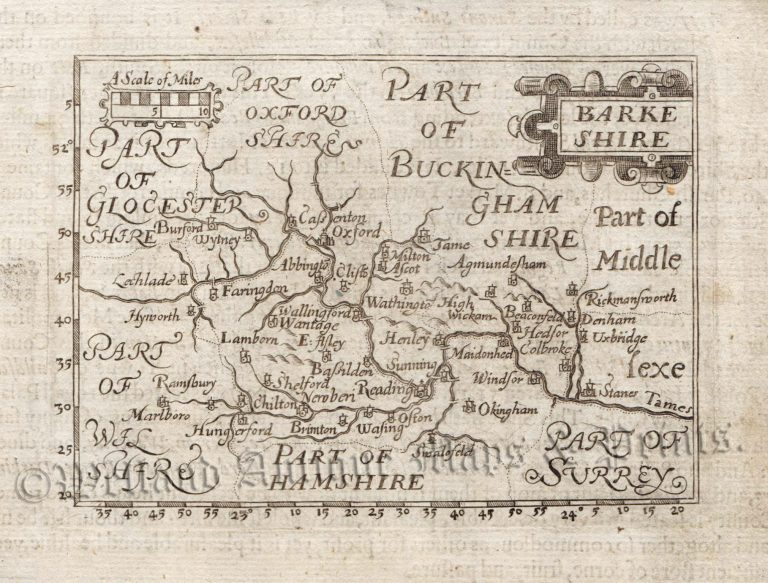 A Scale of Miles
5 10
BARKE
SHIRE
PART OF
OXFORD
SHIRE
PART
OF
BUCKIN=
GHAM
SHIRE
PART
OF
GLOCESTER
SHIRE
Part of
Middle
sexe
Burford
Wytney
Cassenton
Oxford
Tame
Milton
Ascot
Agmundesham
Abbington
Clifts
Lechlade
Faringdon
Wathington
High
Wickam
Beaconfeld
Rickmansworth
Denham
Uxbridge
Hyworth
Wallingford
Wantage
Hedsor
Colbroke
Lamborn
E: Ilsley
Henley
Maidonhed
Basilden
Sunning
Windsor
Ramsbury
Shelford
Reading
Stanes
Tames
Marlboro
Chilton
Newberi
Okingham
Hungerford
Brimton
Wasing
Ofton
Swalofeld
PART
OF
WIL
SHIRE
PART OF
HAMSHIRE
PART OF
SURREY
5
52°
55
50
45
40
35
30
25
20
35 40 45 50 55 23° 5 10 15 20 25 30 35 40 45 50 55 24° 5 10 15 20
©Welland Antique Maps & Prints.